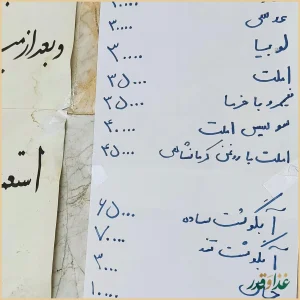 ۱۰۰۰۰
عدسی ۳۰۰۰۰
لوبیا ۳۰۰۰۰
املت ۳۵۰۰۰
نیمرو با خرما ۳۵۰۰۰
سوسیس املت ۴۰۰۰۰
املت با روغن کرمانشاهی ۴۵۰۰۰
آبگوشت ساده ۶۵۰۰۰
آبگوشت ۷۰۰۰۰
۳۰۰۰
۱۰۰۰۰
و بعد از
استعم
غذا و قدر